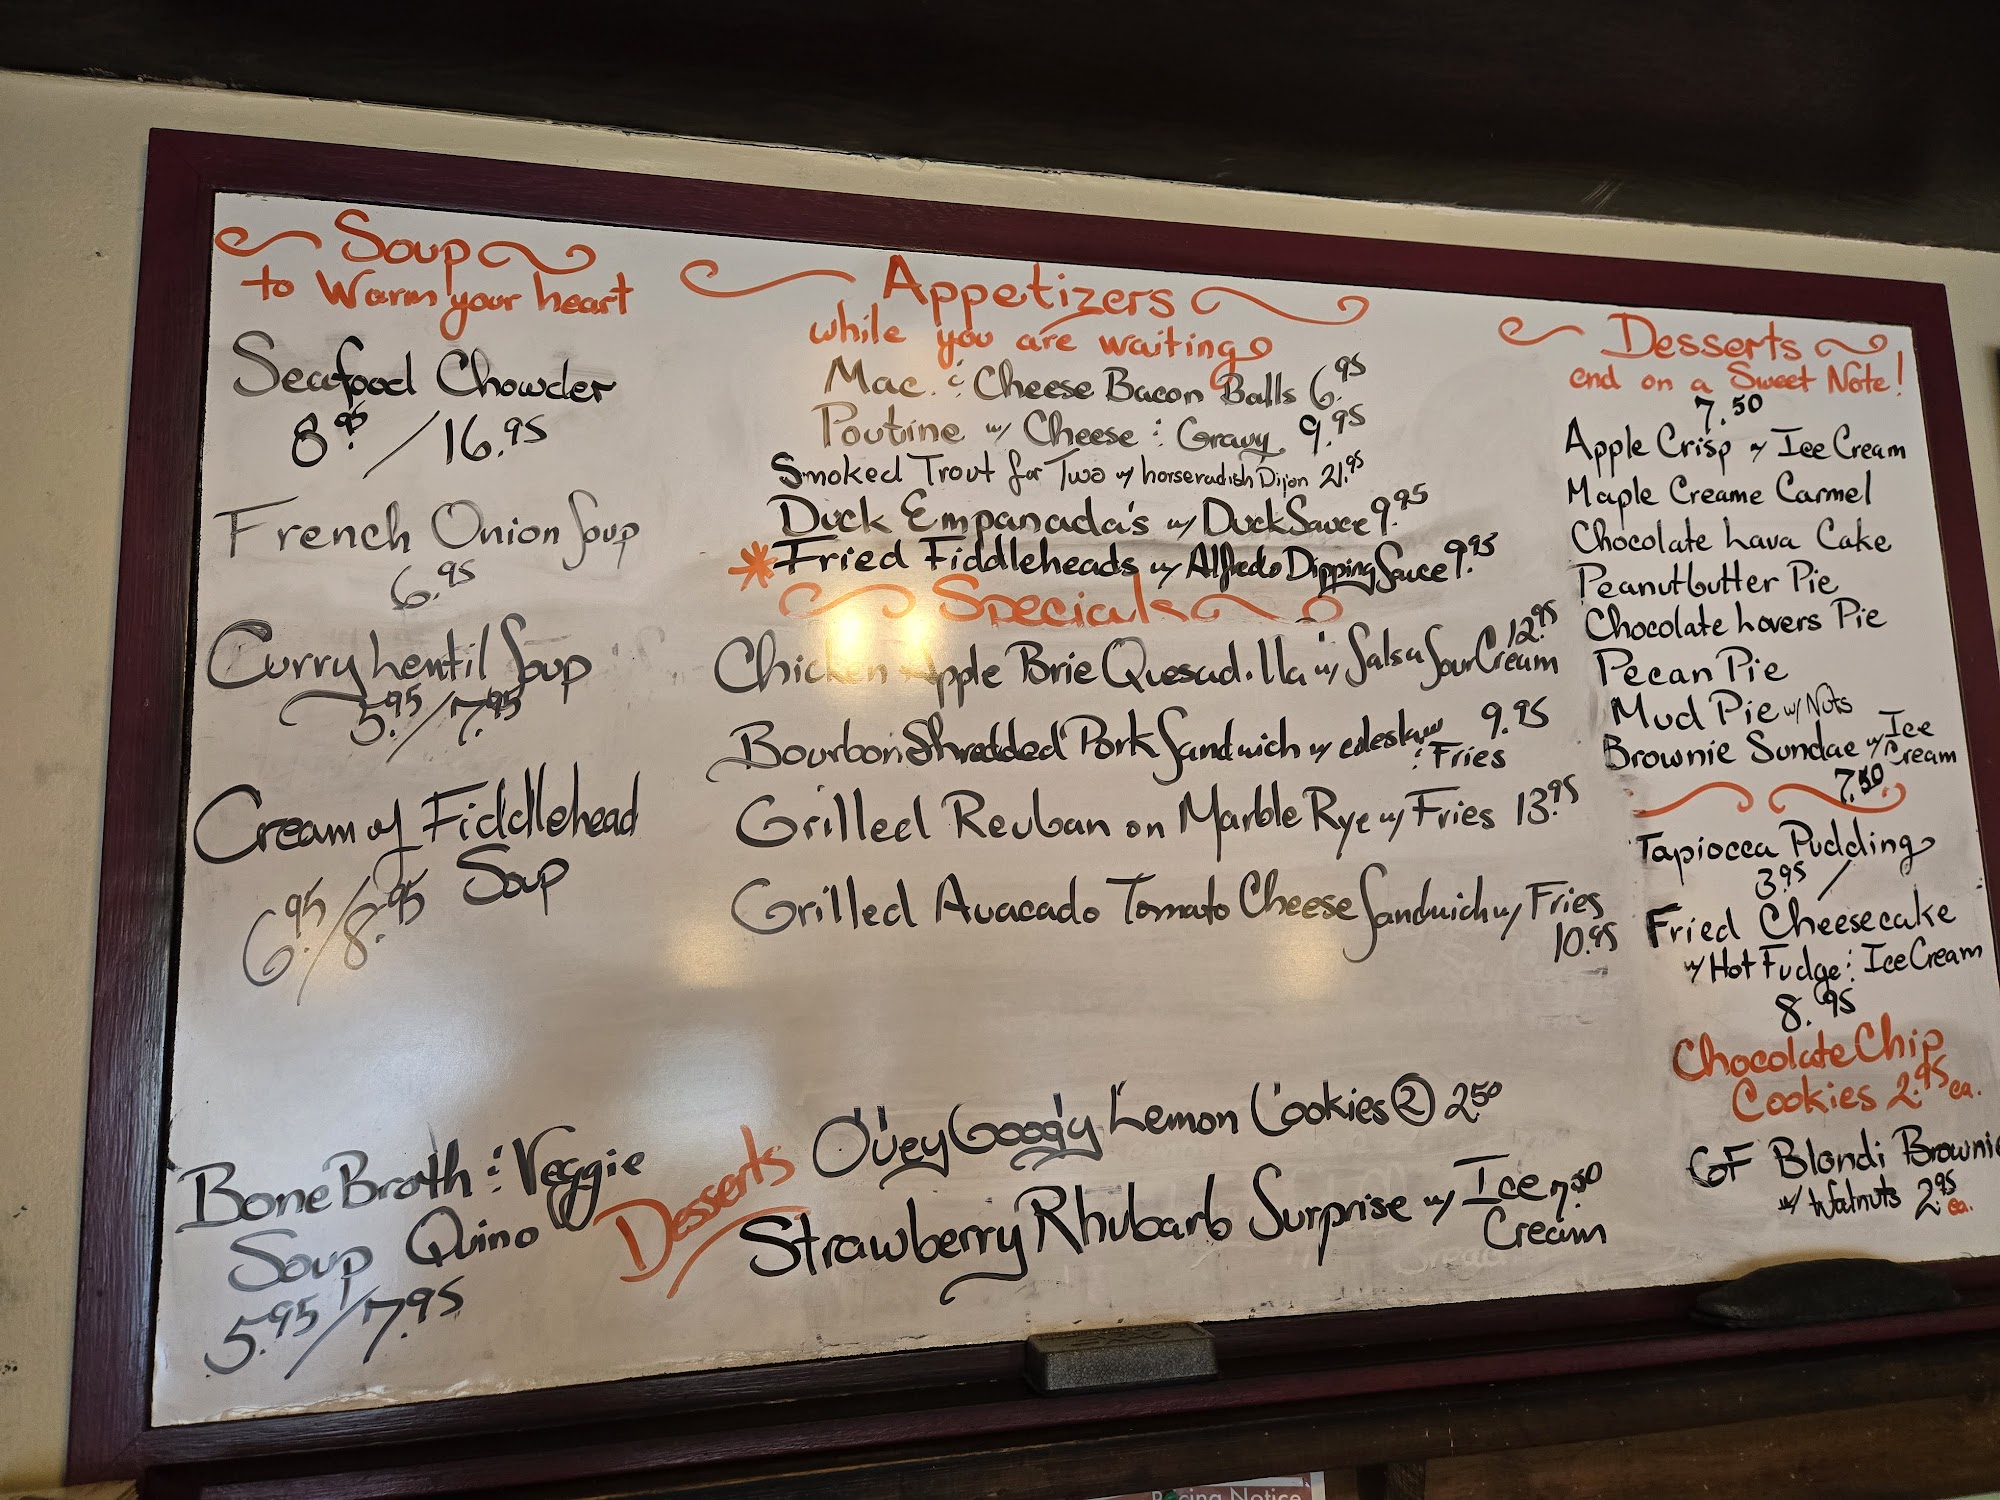 Soup
to Warm your heart
Seafood Chowder
8.95/16.95
French Onion Soup
6.95
Curry Lentil Soup
5.95/7.95
Cream of Fiddlehead
Soup
6.95/8.95
Bone Broth & Veggie
Soup Quino
5.95/7.95
Appetizers
while you are waiting
Mac. & Cheese Bacon Balls 6.95
Poutine w/ Cheese & Gravy 9.95
Smoked Trout for Two w/ horseradish Dijon 21.95
Duck Empanada's w/ Duck Sauce 9.95
*Fried Fiddleheads w/ Alfredo Dipping Sauce 9.95
Specials
Chicken Apple Brie Quesadilla w/ Salsa Sour Cream 12.95
Bourbon Shredded Pork Sandwich w/ coleslaw 9.95
& Fries
Grilled Reuban on Marble Rye w/ Fries 13.95
Grilled Avacado Tomato Cheese Sandwich w/ Fries
10.95
Desserts
O'uey Gooey Lemon Cookies (2) 2.50
Strawberry Rhubarb Surprise w/ Ice 7.50
Cream
Desserts
end on a Sweet Note!
7.50
Apple Crisp w/ Ice Cream
Maple Creame Carmel
Chocolate Lava Cake
Peanutbutter Pie
Chocolate Lovers Pie
Pecan Pie
Mud Pie w/ Nuts
Brownie Sundae w/ Ice
Cream
7.50
Tapiocca Pudding
3.95/
Fried Cheesecake
w/ Hot Fudge & Ice Cream
8.95
Chocolate Chip
Cookies 2.95 ea.
GF Blondi Brownie
w/ Walnuts 2.95 ea.
Notice